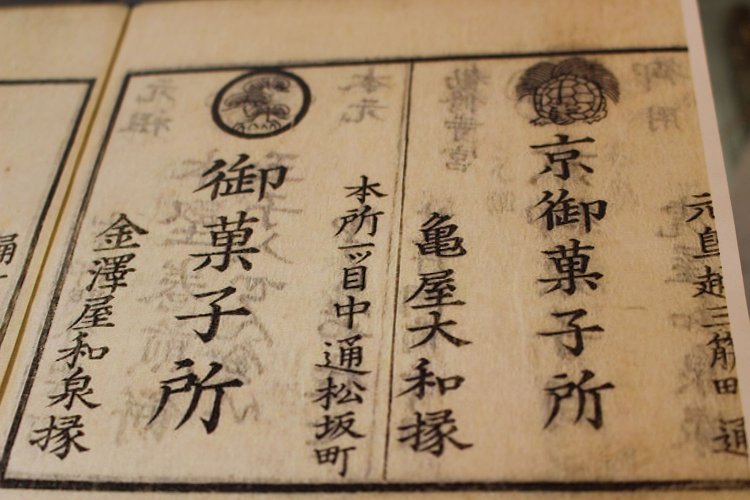 元鳥越三筋町通
京御菓子所
亀屋大和掾
本所一ツ目中通松坂町
御菓子所
金澤屋和泉掾